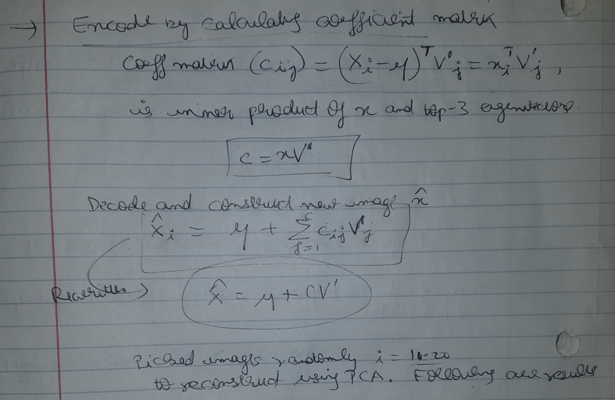 → Encode by calculating coefficient matrix
Coeff matrix (Cij) = (Xi - μ)ᵀ V'j = xiᵀ V'j ,
is inner product of x and top-3 eigenvectors.
C = xV'
Decode and construct new image x̂
X̂i = μ + Σ j=1 cij V'j
Rewritten
X̂ = μ + CV'
Picked images randomly i = 10-20
to reconstruct using PCA. Following are results